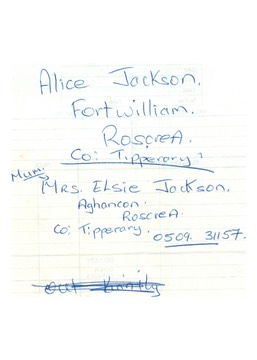 Alice Jackson.
Fortwilliam.
RoscreA.
Co: Tipperary?
Mum.
MRs. ELsie Jackson.
Aghancon.
RoscreA.
Co: Tipperary.
0509. 31157.